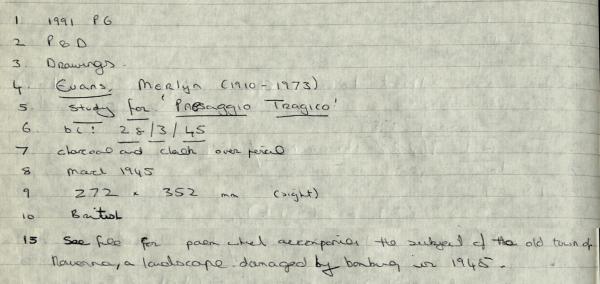 1 1991 PG
2 P & D
3 Drawings.
4. Evans, Merlyn (1910-1973)
5 Study for 'Presaggio Tragico'
6 bl: 28/3/45
7 charcoal and chalk over pencil
8 March 1945
9 272 x 352 mm (sight)
10 British
15 See file for poem which accompanies the subject of the old town of
Ravenna, a landscape damaged by bombing in 1945.